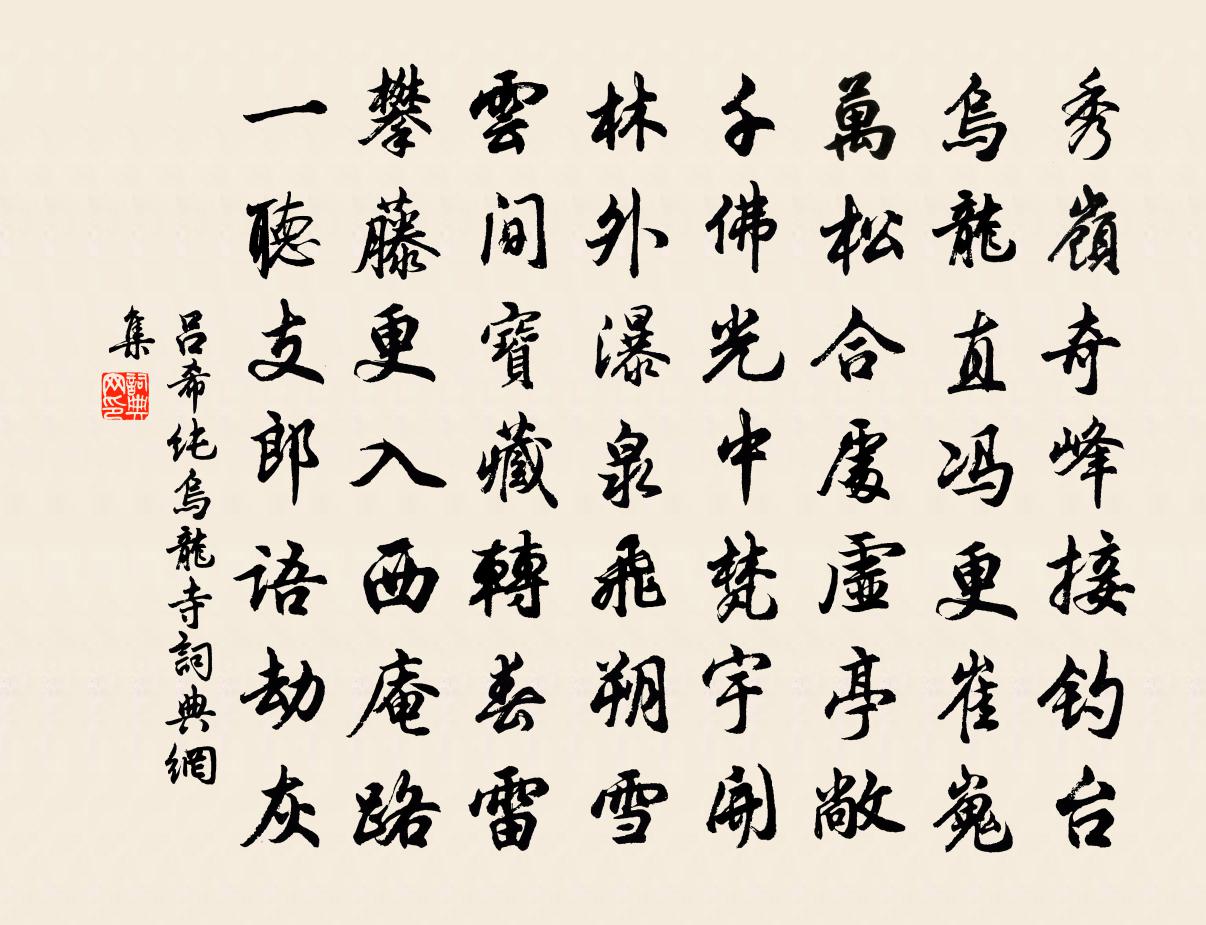 秀嶺奇峰接钓台
烏龍直冯更崔嵬
萬松合處虛亭敞
千佛光中梵宇開
林外瀑泉飛朔雪
雲間寶藏轉春雷
攀藤更入西庵路
一聴支郎语劫灰
吕希纯烏龍寺詞典網
集
詞典网印